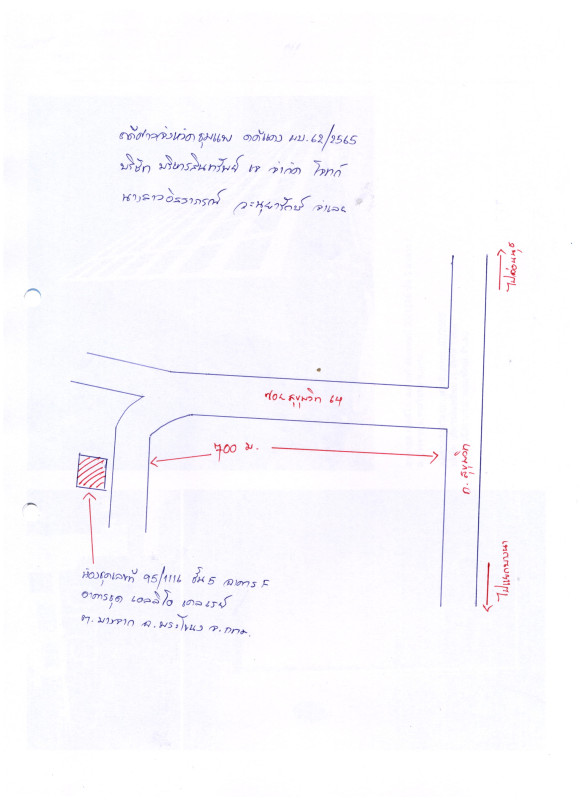 คดีศาลจังหวัดชุมแพ คดีแดง ผบ.62/2565
บริษัท บริหารสินทรัพย์ เจ จำกัด โจทก์
นางสาว จำเลย
ไปอ่อนนุช
ซอย สุขุมวิท 64
700 ม.
ถ. สุขุมวิท
ไปแยกบางนา
ห้องชุดเลขที่ 95/1116 ชั้น 5 อาคาร F
อาคารชุด เอลลิโอ เดลเรย์
ต. บางจาก อ. พระโขนง จ. กทม.